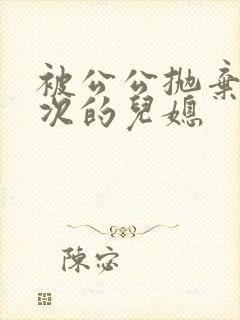 被公公抛棄
次的兒媳
陳宓